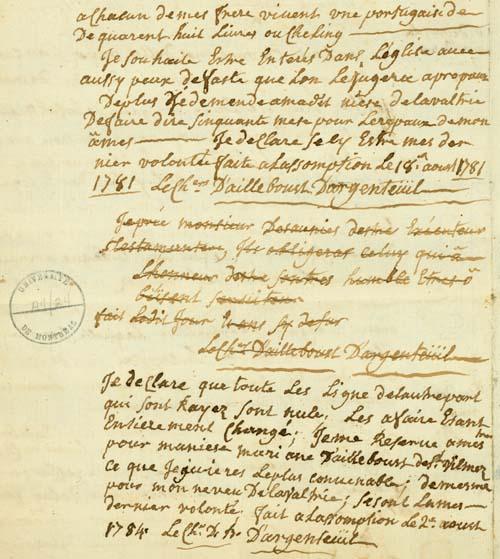 a chacun de mes frere vivent vne portugaise de
De quarent huit Livres ou cheling
Je souhaite Estre Enterés Dans L'église avec
aussy peux de faste que L'on Le jugerea apropaux
Deplus Je demende a madit niese de lavaltrie
De faire dire sinquante mese pour Lerepaux de mon
âmes — Je declare se cy Estre mes der
nier volontée faite a Lassomption Le 18e aoust 1781
1781 Le Chers D'ailleboust D'argenteüil
Je prie monsieur Desaunies destre Executeur
Testamenter, obligeras celuy qui â
L'honneur destre humble Et res o
béisent serviteur
fait Ledit Jour
Le Chr. D'ailleboust D'argenteüil
UNIVERSITÉ DE MONTRÉAL
Je declare que toute Les Ligne de lautre part
qui sont Rayez sont nule, Les afaire Etant
Entierement Changé; Je me Reserve
pour maniese mari ane Dailleboust de St. vilmez
ce que Je Le plus convenable; de mesme
pour mon neveu De Lavaltrie; se sont La mes
dernier volonté fait a Lassomption Le 2e aoust
1784 Le Chr. D'argenteüil